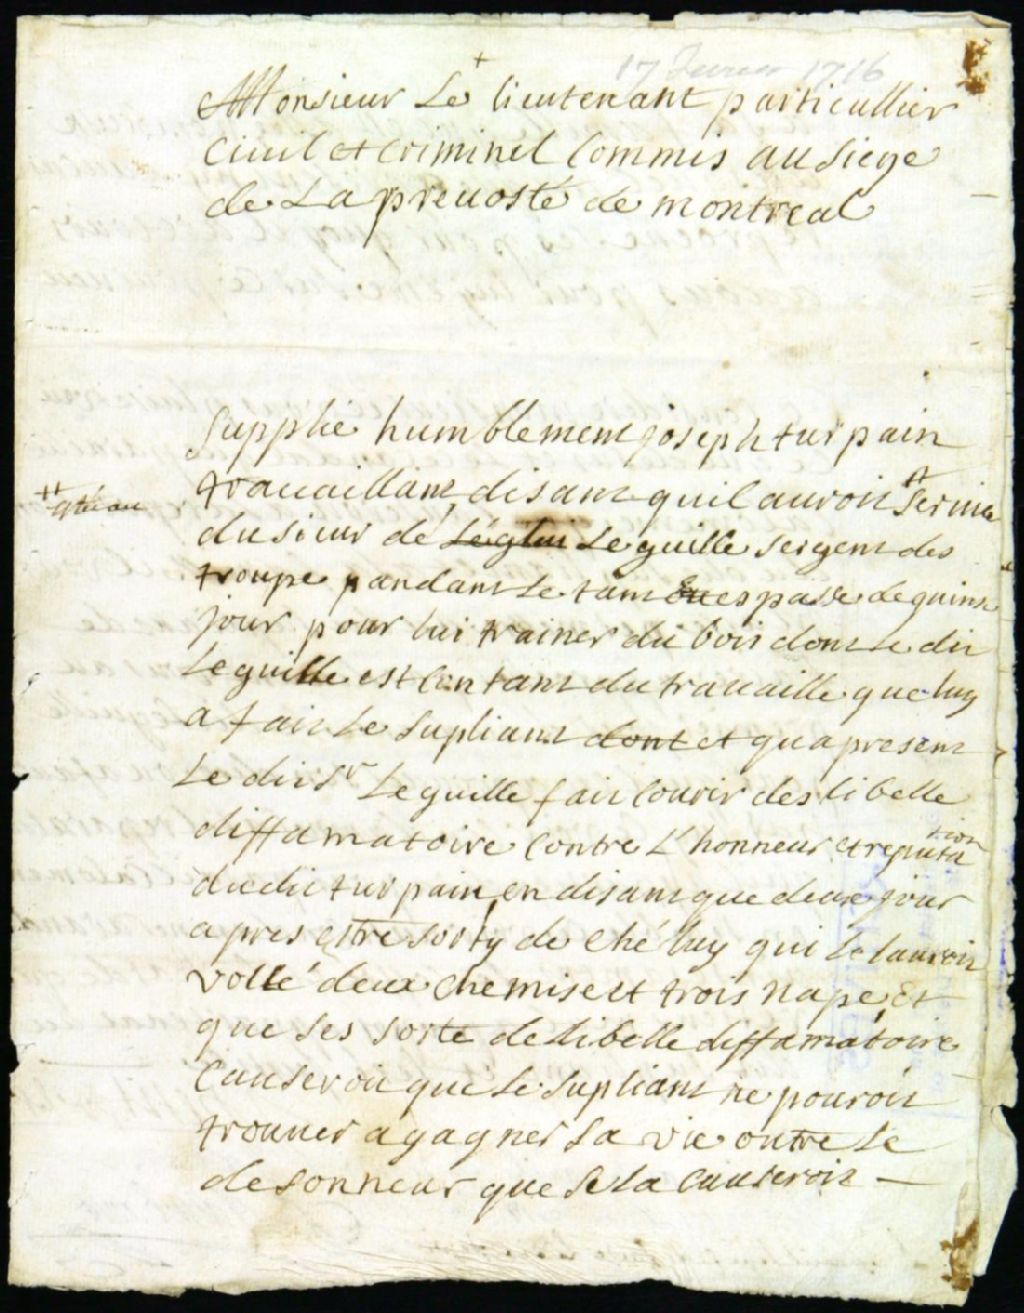 17 fevrier 1716
Monsieur Le lieutenant particullier
Civil et Criminel Commis au siege
de La prevosté de montreal
Supplie humblement joseph turpain
travaillant disant quil auroit servi
du sieur de Leguille sergent des
troupe pandant le tams espasse de quinse
jour pour lui trainer du bois dont le dit
Leguille est Contant du travaille que luy
a fait Le Supliant dont et qua present
Le dit Sr Leguille fait Courir des libelle
diffamatoire Contre L'honneur et reputation
dudit turpain en disant que deux jour
apres estre sorty de Ché luy qui le lauroit
vollé deux Chemise et trois nape, et
que ses sorte de libelle diffamatoire
Causeroit que Le Supliant ne pouroit
trouver a gagner sa vie outre Le
desonneur que Sela Causeroit —